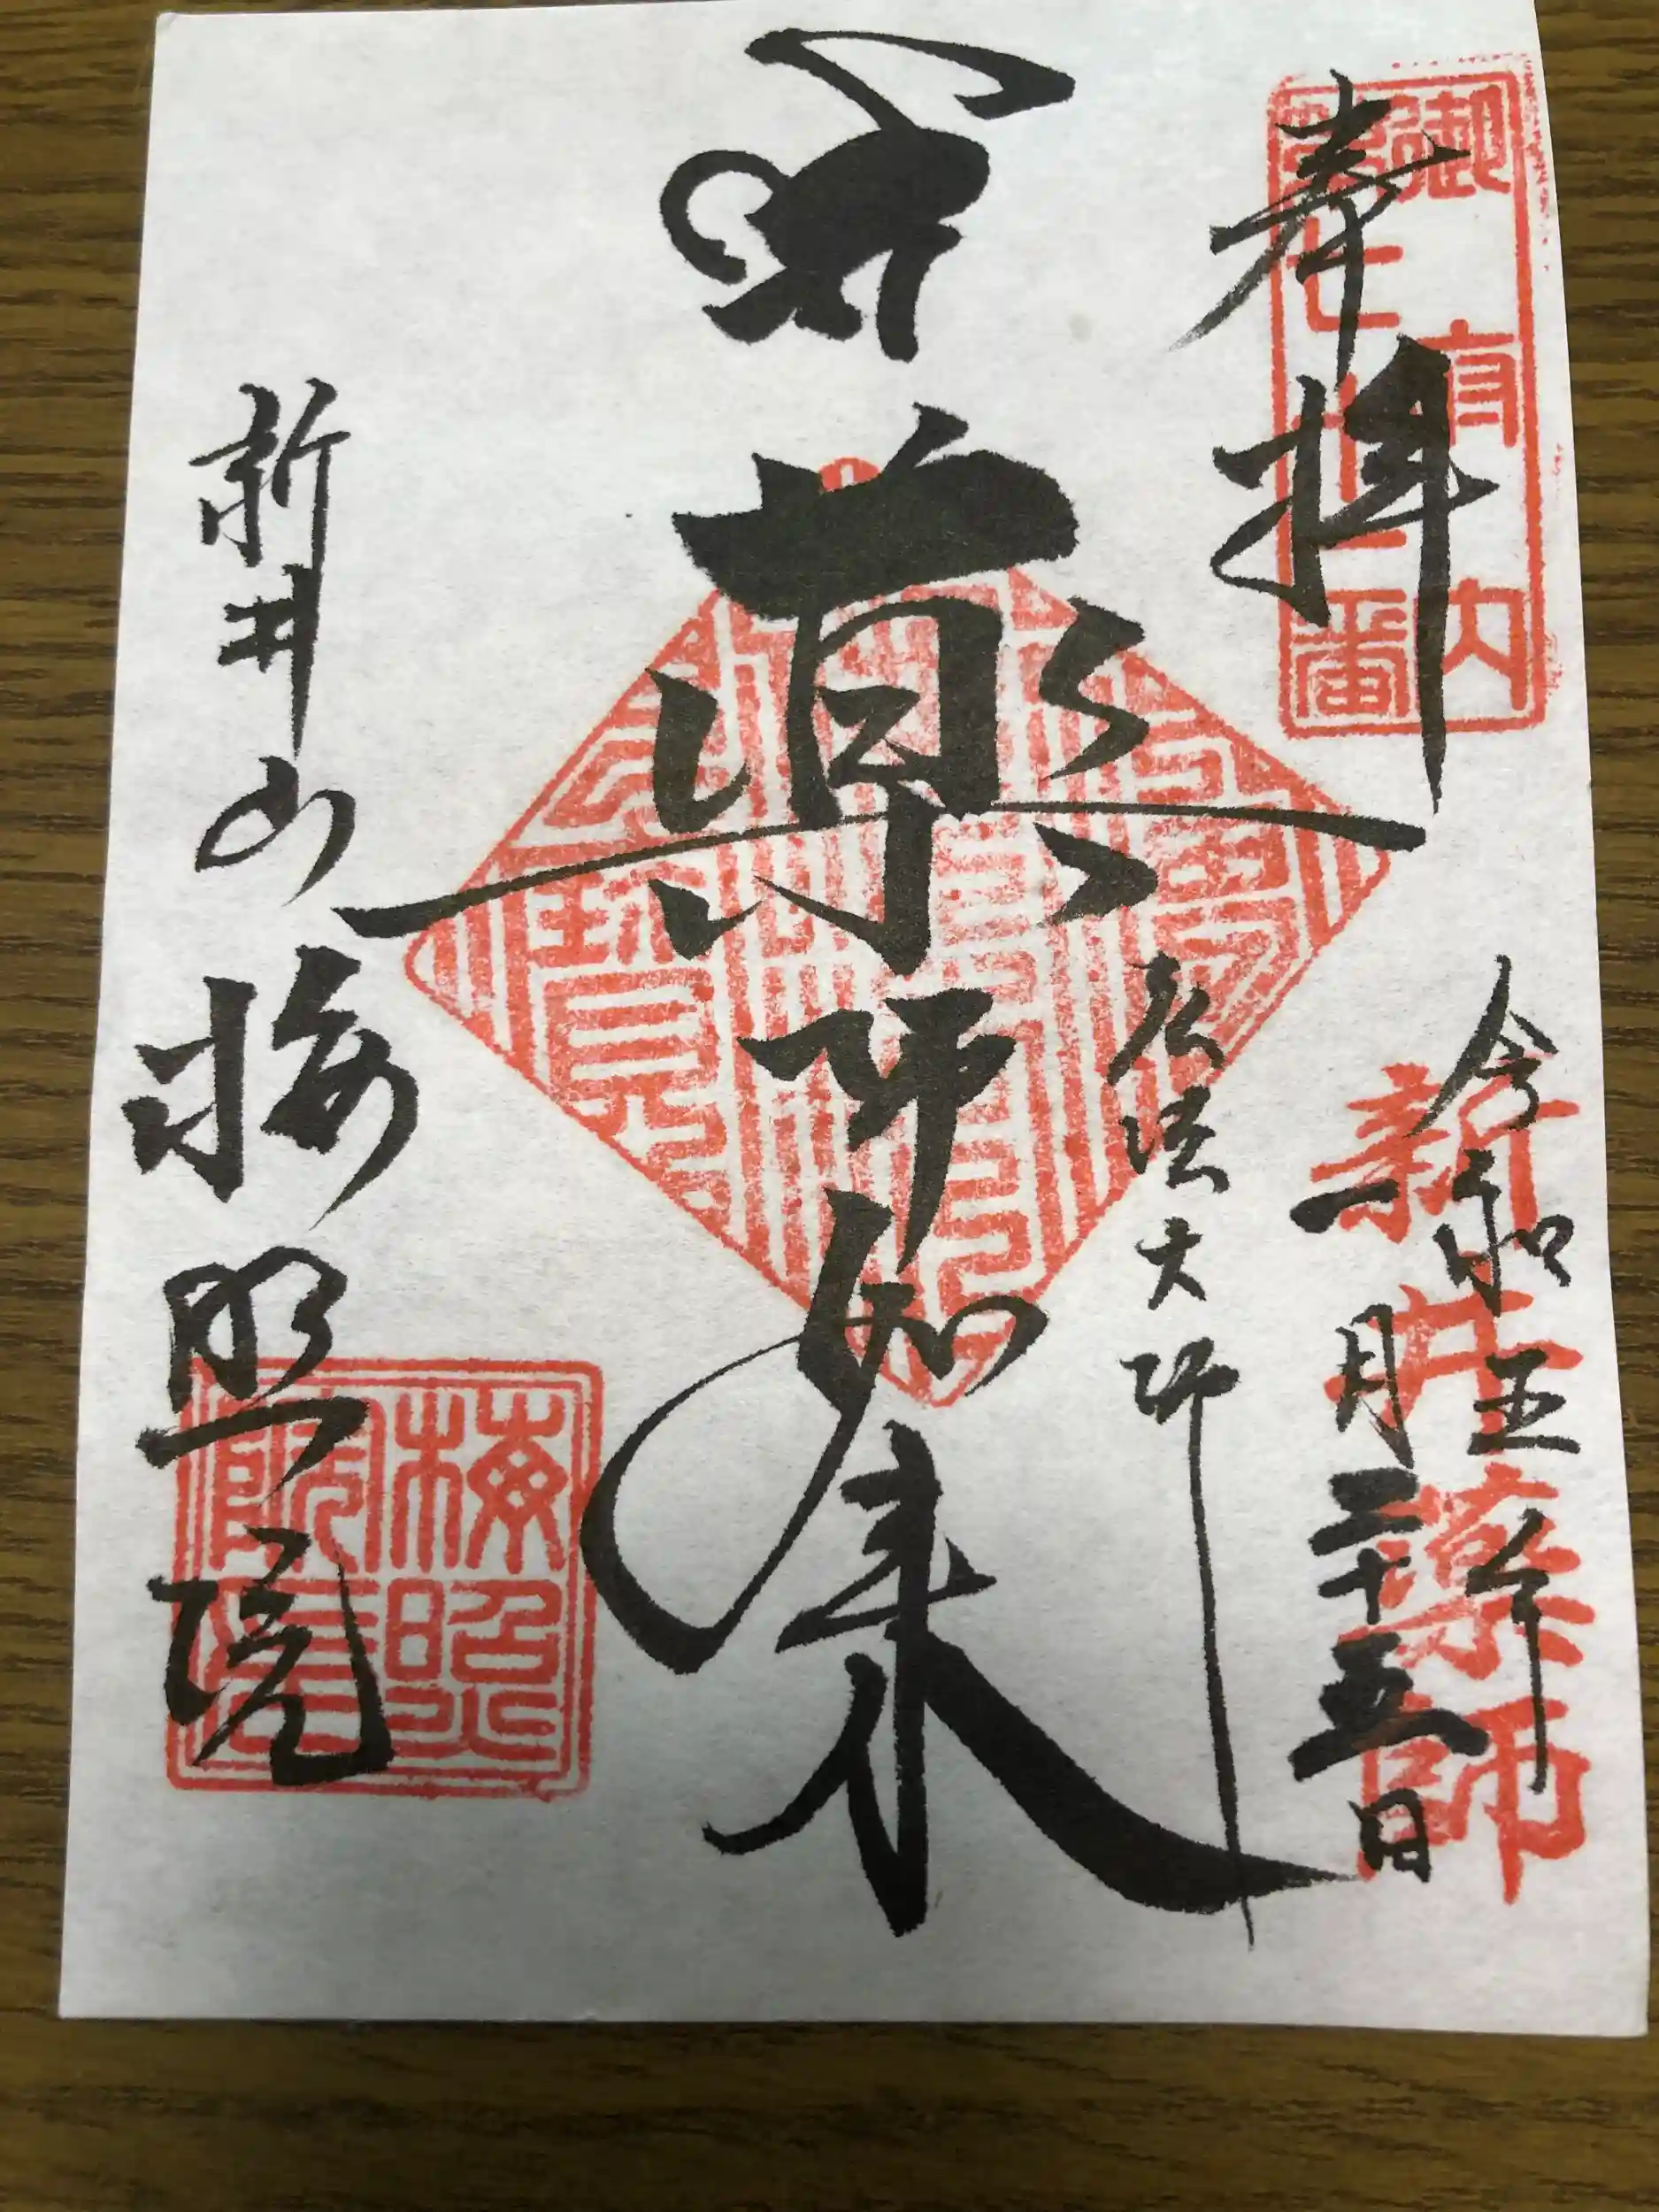 奉拝
御府内
第七十一番
令和五年
一月二十五日
新井薬師
弘法大師
薬師如来
新井山梅照院
梅照
院